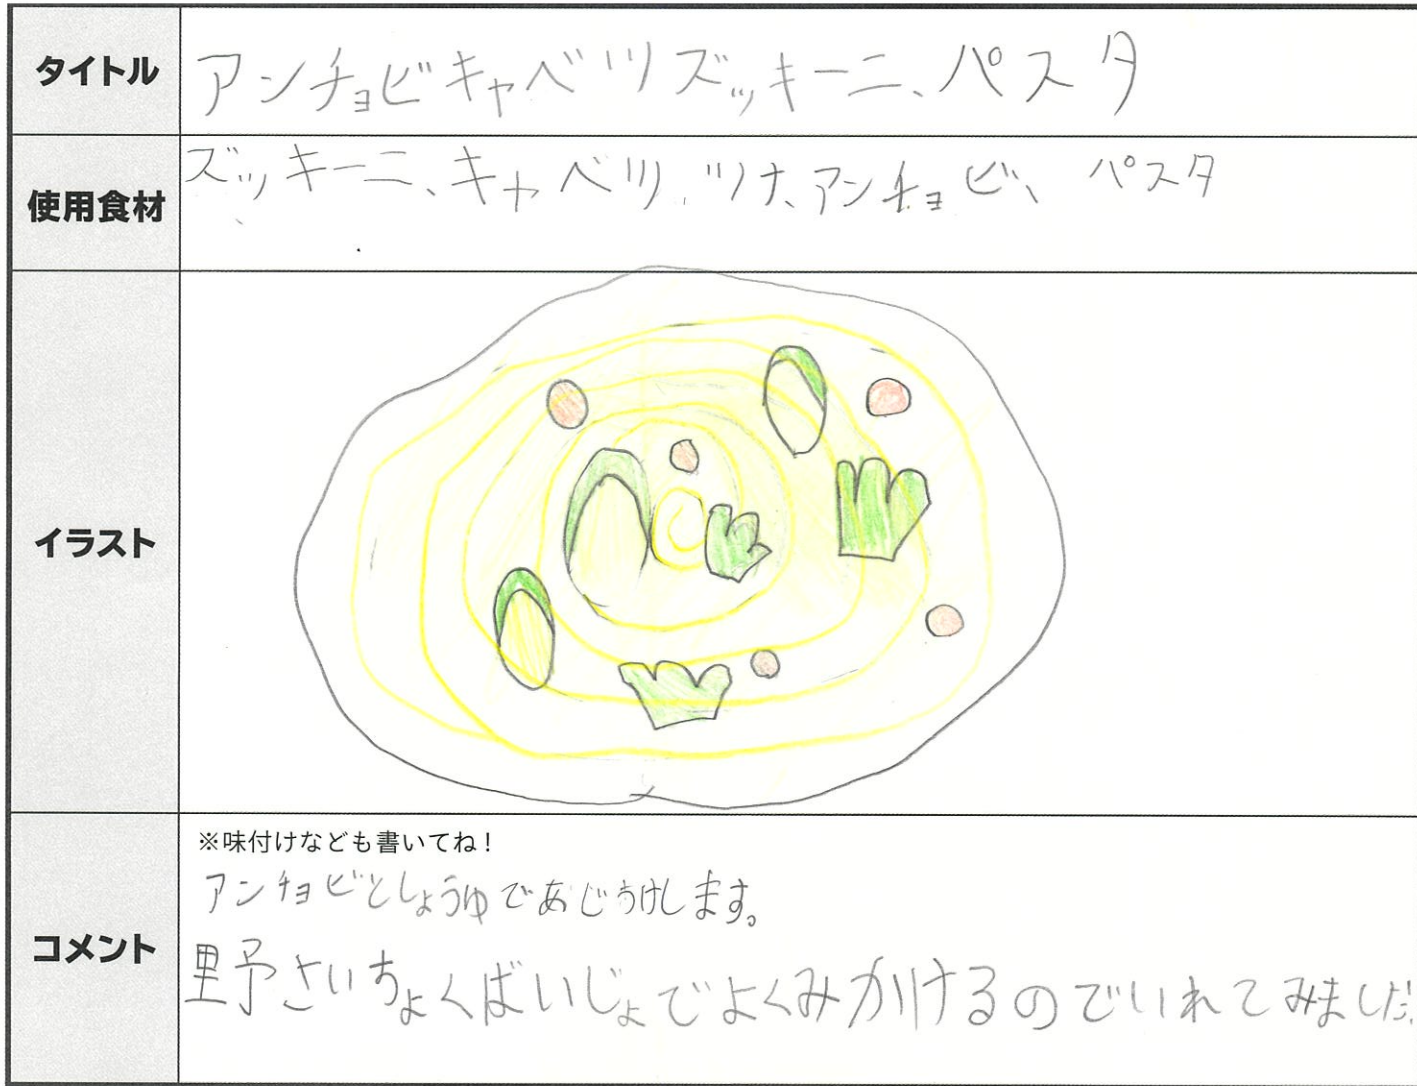 タイトル
アンチョビキャベツズッキーニ、パスタ
使用食材
ズッキーニ、キャベツ、ツナ、アンチョビ、パスタ
イラスト
※味付けなども書いてね！
アンチョビとしょうゆであじつけします。
コメント
野さいちょくばいじょでよくみかけるのでいれてみました。